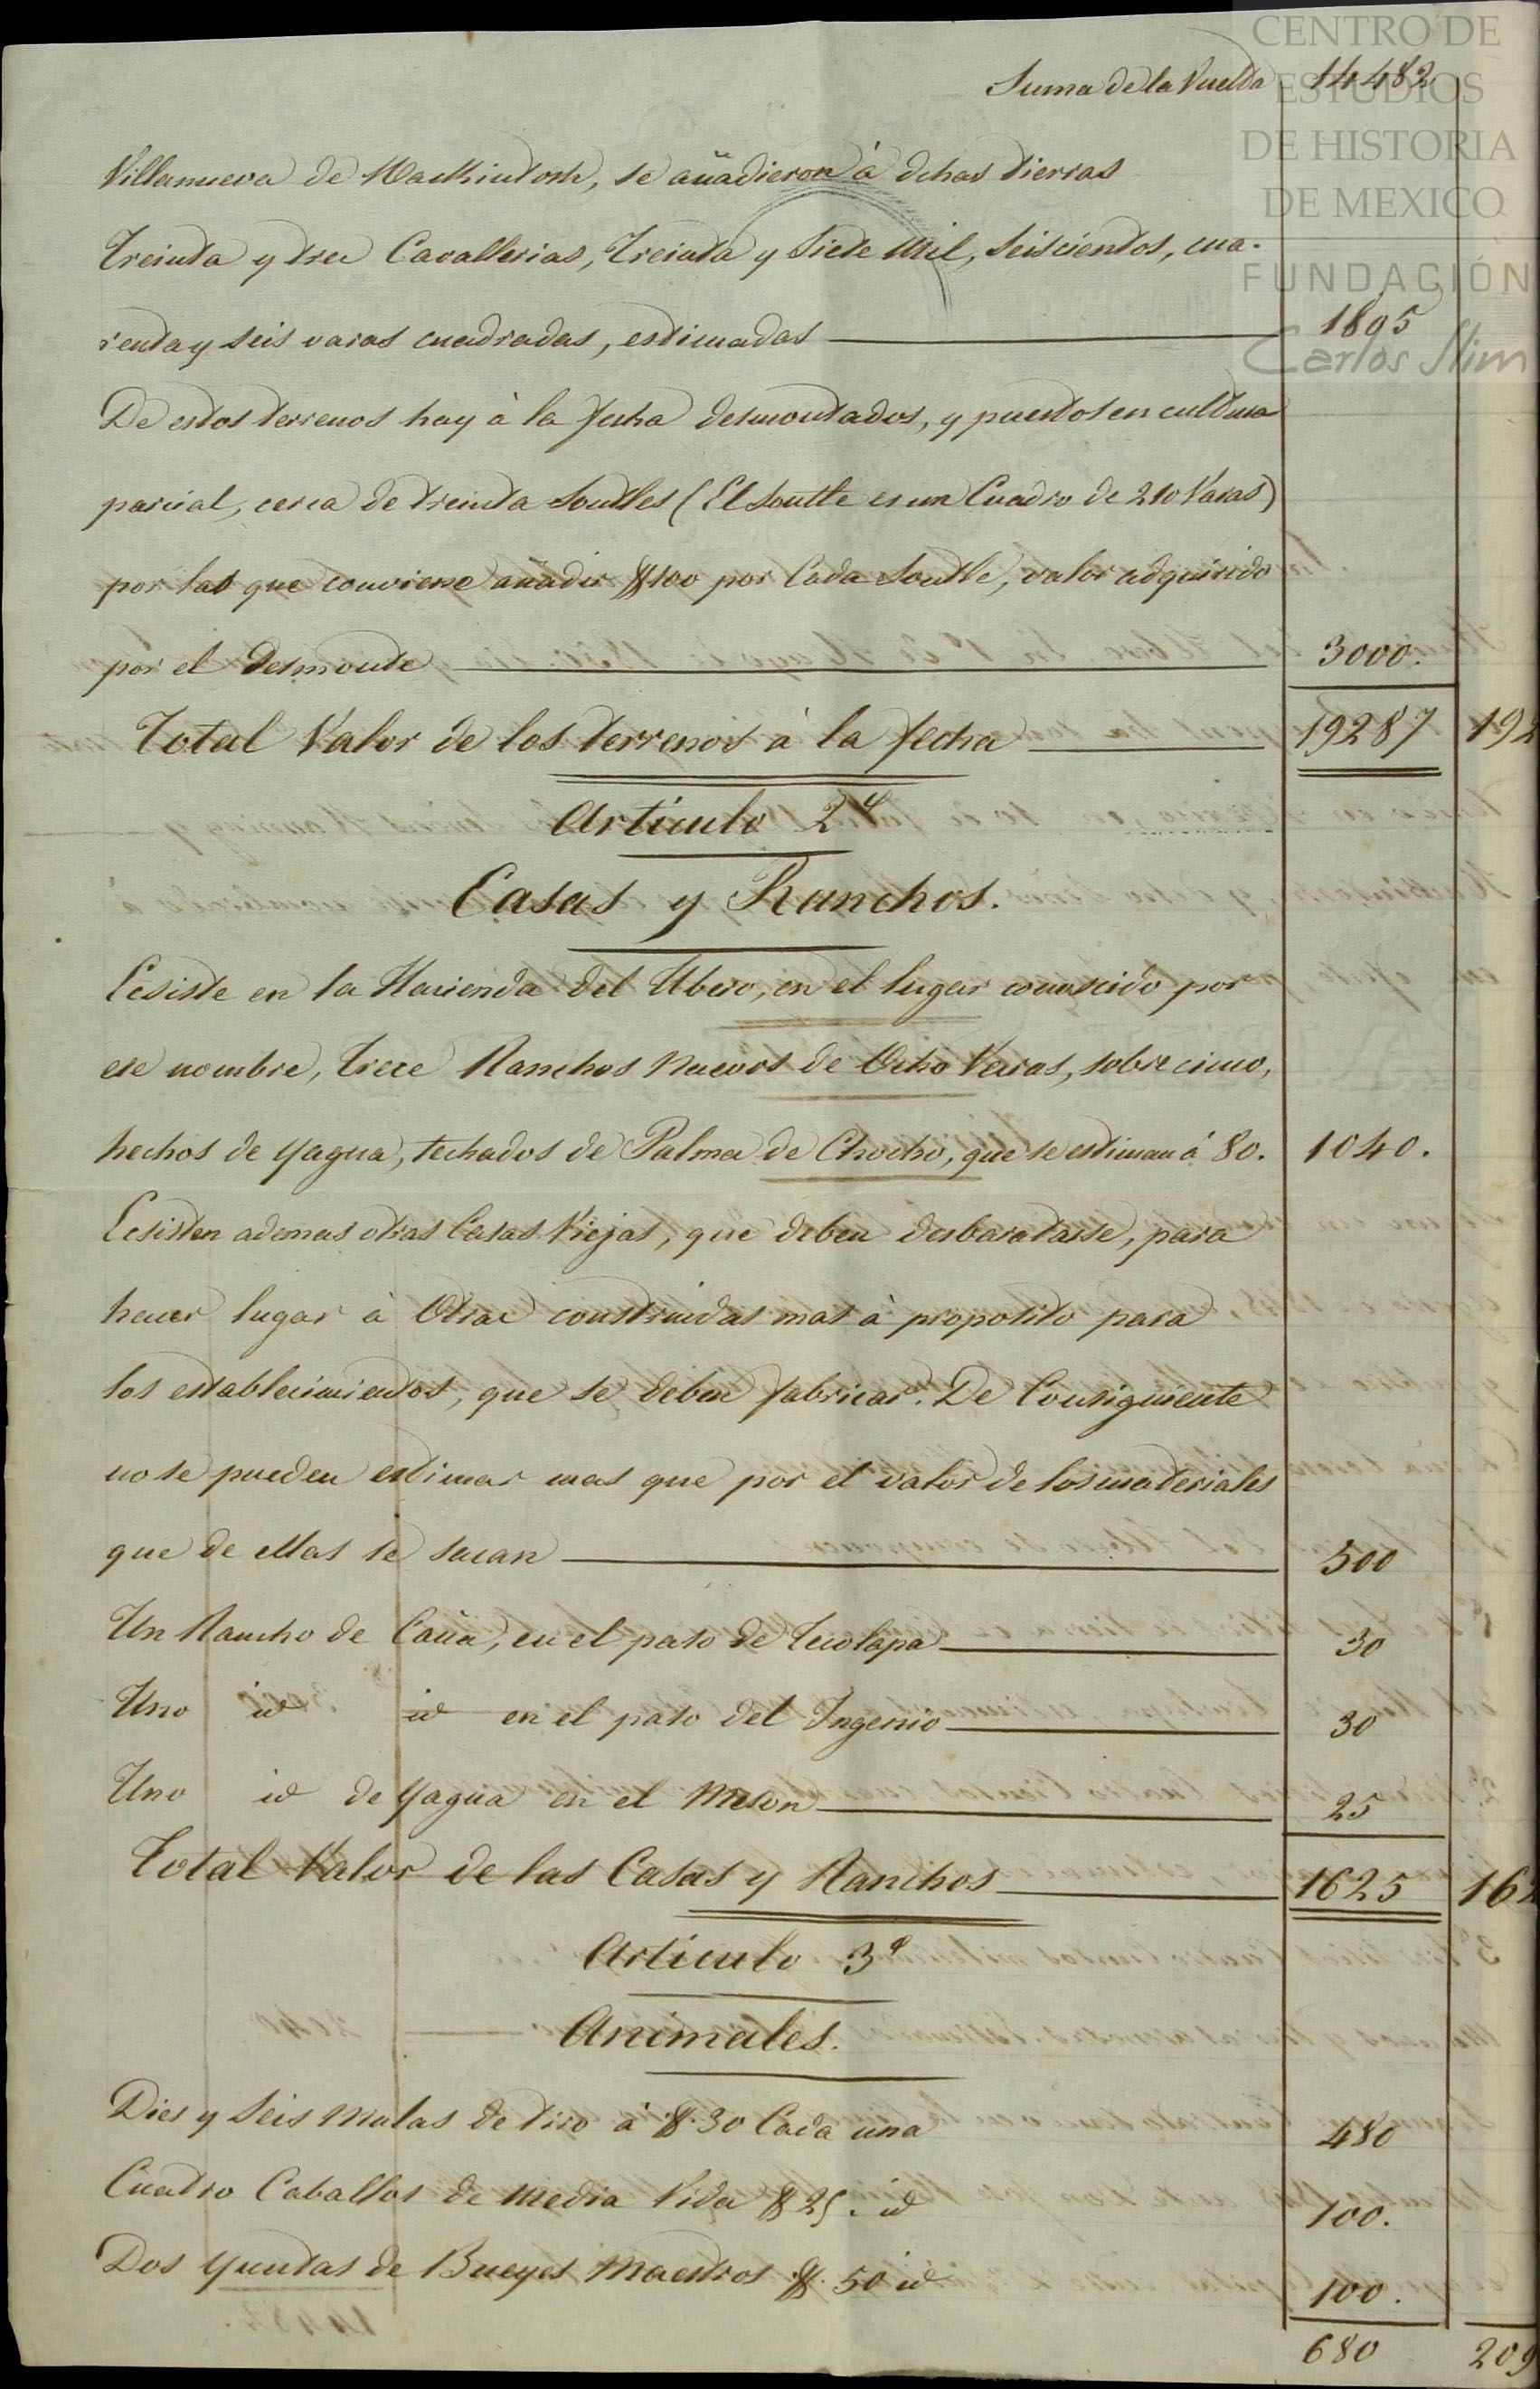 CENTRO DE
ESTUDIOS
DE HISTORIA
DE MEXICO
FUNDACIÓN
Carlos Slim
Suma de la Vuelta 14482
Villanueva de Mackintosh, se añadieron à dchas tierras
Treinta y tres Cavallerias, Treinta y Siete Mil, Seiscientos, cua-
renta y seis varas cuadradas, estimadas 1805
De estos terrenos hay à la fecha desmontados, y puestos en cultura
parcial, cerca de treinta Soutles (El Soutle es un Cuadro de 210 Varas)
por las que conviene añadir $100 por Cada Soutle, valor adquirido
por el desmonte 3000.
Total Valor de los terrenos à la fecha 19287 192
Articulo 2º
Casas y Ranchos.
Ecsiste en la Hacienda del Ubero, en el lugar conoscido por
ese nombre, trece Ranchos nuevos de Ocho Varas, sobre cinco,
hechos de Yagua, techados de Palma de Chocho, que se estiman á 80. 1040.
Ecsisten ademas otras Casas Viejas, que deben desbaratarse, para
hacer lugar à Otras construidas mas à proposito para
los establecimientos, que se deben fabricar. De Consiguiente
no se pueden estimar mas que por el valor de los materiales
que de ellas se sacan 500
Un Rancho de Caña, en el paso de Tecolapa 30
Uno id id en el paso del Ingenio 30
Uno id de Yagua en el Meson 25
Total Valor de las Casas y Ranchos 1625 162
Articulo 3º
Animales.
Dies y Seis Mulas de tiro à $.30 Cada una 480
Cuatro Caballos de media Vida $25. id 100.
Dos Yuntas de Bueyes Maestros $. 50 id 100.
680 209